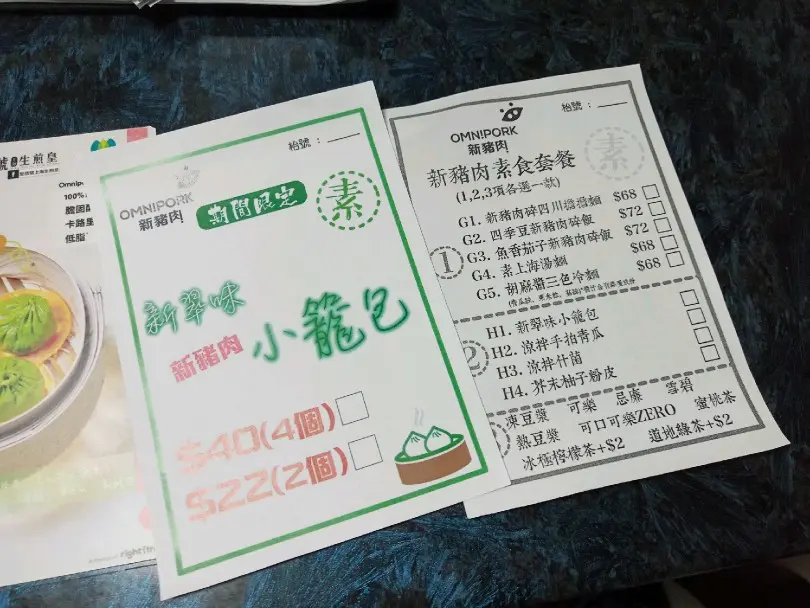 號 生煎皇
Omnip
100%
膽固
卡路里
低脂
枱號：
OMNIPORK
新豬肉
期間限定
素
新翠味
新豬肉 小籠包
$40(4個)
$22(2個)
枱號：
OMNIPORK
新豬肉
素
新豬肉素食套餐
(1,2,3項各選一款)
1
G1. 新豬肉碎四川擔擔麵 $68
G2. 四季豆新豬肉碎飯 $72
G3. 魚香茄子新豬肉碎飯 $72
G4. 素上海湯麵 $68
G5. 胡麻醬三色冷麵 $68
2
H1. 新翠味小籠包
H2. 涼拌手拍青瓜
H3. 涼拌什菌
H4. 芥末柚子粉皮
凍豆漿 可樂 忌廉 雪碧
熱豆漿 可口可樂ZERO 蜜桃茶
冰極檸檬茶+$2 道地綠茶+$2